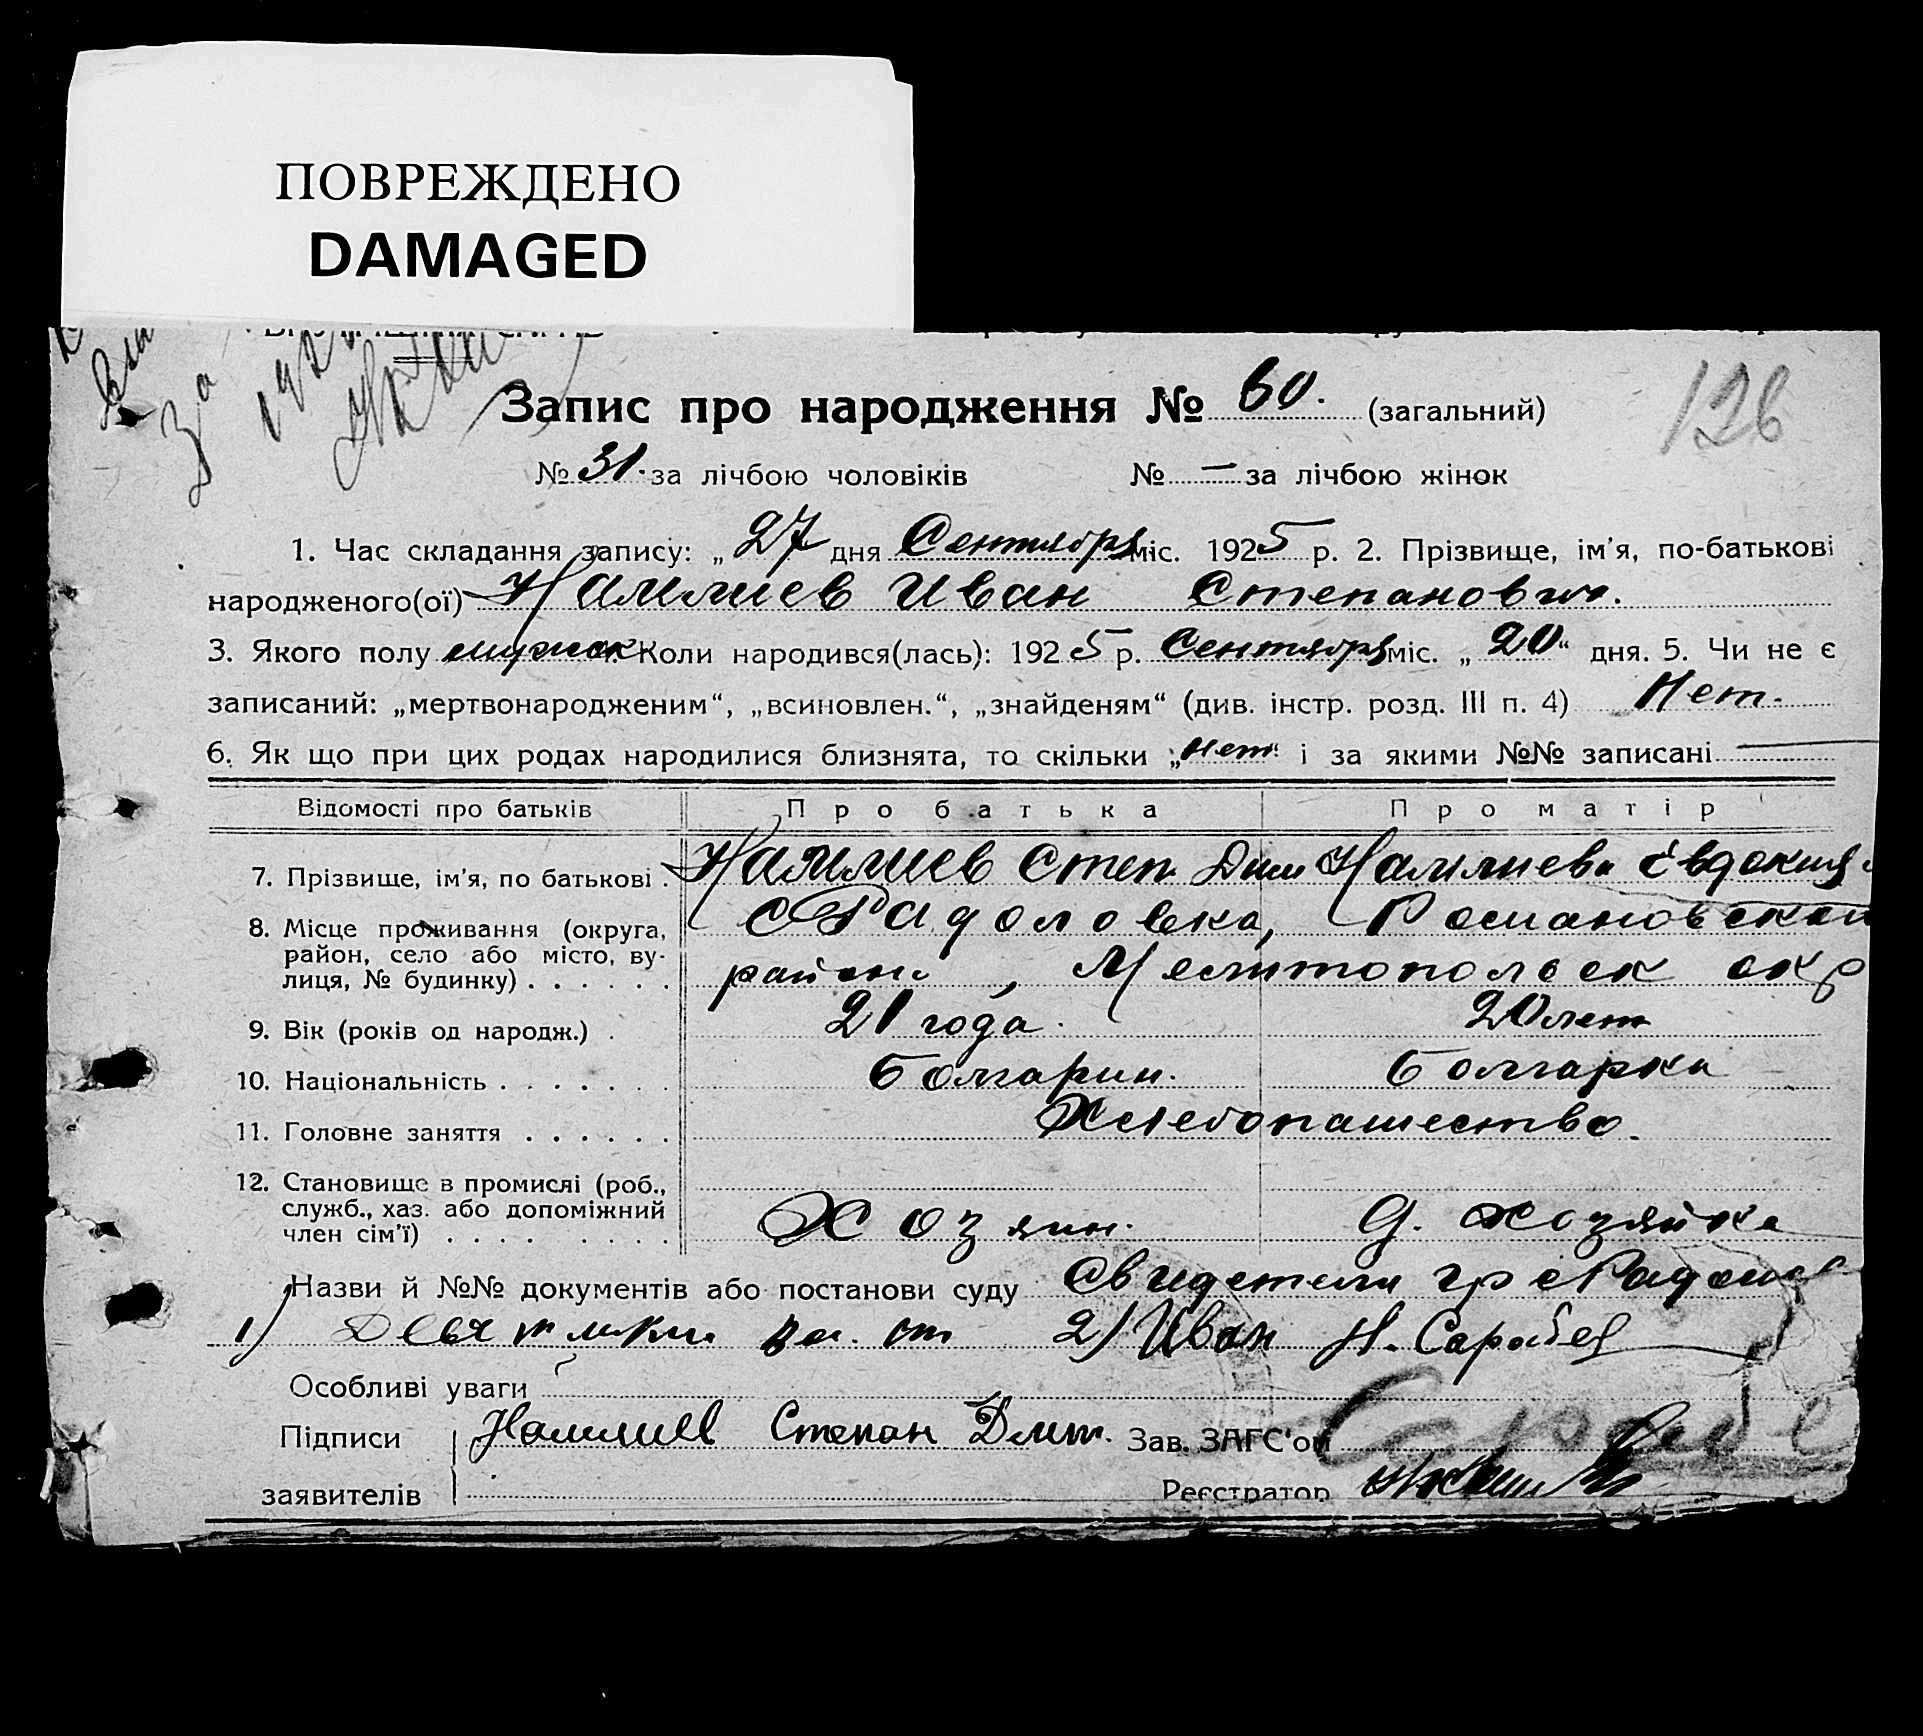 ПОВРЕЖДЕНО
DAMAGED
За
Запис про народження № 60. (загальний)
126
№ 31. за лічбою чоловіків № — за лічбою жінок
1. Час складання запису: „27 дня Сентября міс. 1925 р. 2. Прізвище, ім'я, по-батькові
народженого(ої) Налмиев Иван Степанович.
3. Якого полу мужск Коли народився(лась): 1925 р. Сентября міс. „20“ дня. 5. Чи не є
записаний: „мертвонародженим“, „всиновлен.“, „знайденям“ (див. інстр. розд. III п. 4) Нет.
6. Як що при цих родах народилися близнята, то скільки „нет“ і за якими №№ записані —
Відомості про батьків Про батька Про матір
7. Прізвище, ім'я, по батькові . Налмиев Степ. Дим Налмиева Евдокия
8. Місце проживання (округа, район, село або місто, вулиця, № будинку) . . . . . . С Радоловка, Романовской
района, Мелитопольск окр
9. Вік (років од народж.) . 21 года. 20 лет
10. Національність . . . . . . . Болгарин. Болгарка
11. Головне заняття . . . . . . Хлебопашество.
12. Становище в промислі (роб., служб., хаз. або допоміжний член сім'ї) . . . . . . . . Хозяин. д. хозяйка
Назви й №№ документів або постанови суду Свидетели гр с
1) 2) Иван Н.
Особливі уваги
Підписи Налмиев Степан Дмит. Зав. ЗАГС'ом
заявителів Реєстратор